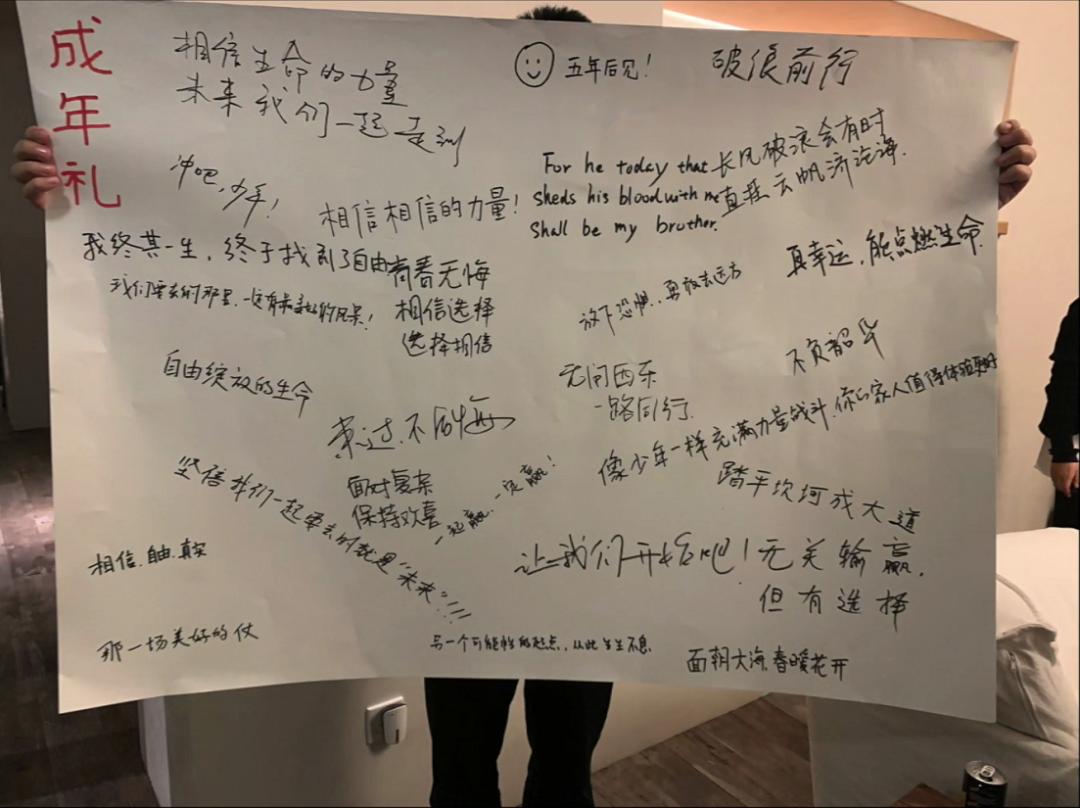 成年礼
相信生命的力量
未来我们一起走到
五年后见！
破浪前行
冲吧，少年！
相信相信的力量！
For he today that
sheds his blood with me
Shall be my brother.
长风破浪会有时
直挂云帆济沧海.
我终其一生，终于找到了自由
我们要去的那里，一定有最好的风景！
青春无悔
相信选择
选择相信
放下恐惧，勇敢去远方
真幸运，能点燃生命.
自由绽放的生命
无问西东
一路同行.
不负韶华
来过、不后悔
像少年一样充满力量战斗.你的家人值得体验更好
面对复杂
保持欢喜
一起赢、一定赢！
踏平坎坷成大道
坚信我们一起要去的就是“未来”！！！
相信.自由.真实
让我们开始吧！无关输赢.
但有选择
那一场美好的仗
另一个可能性的起点，从此生生不息
面朝大海.春暖花开